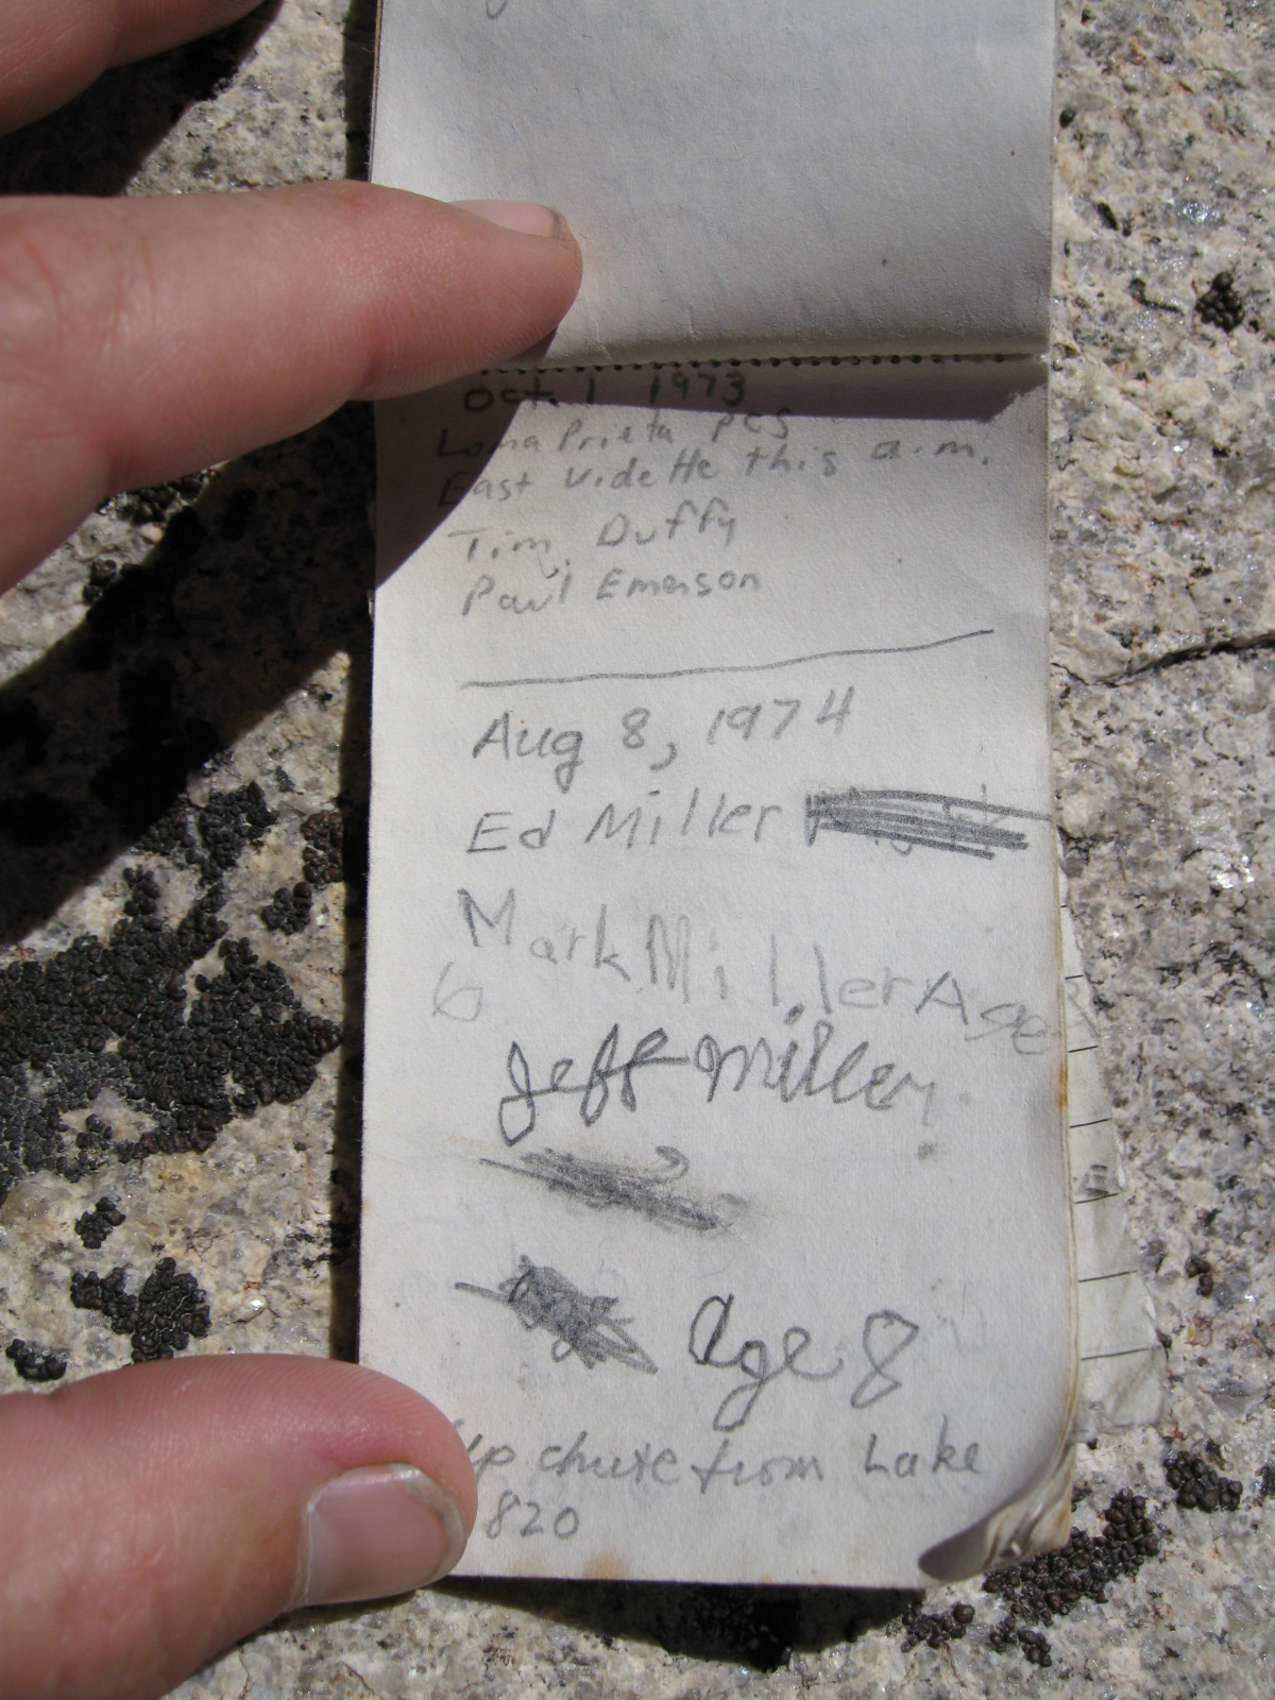 Oct. 1 1973
Loma Prieta PCS
East Vidette this a.m.
Tim Duffy
Paul Emerson
Aug 8, 1974
Ed Miller
Mark Miller Age
6
Jeff Miller
age 8
Up chute from Lake
820